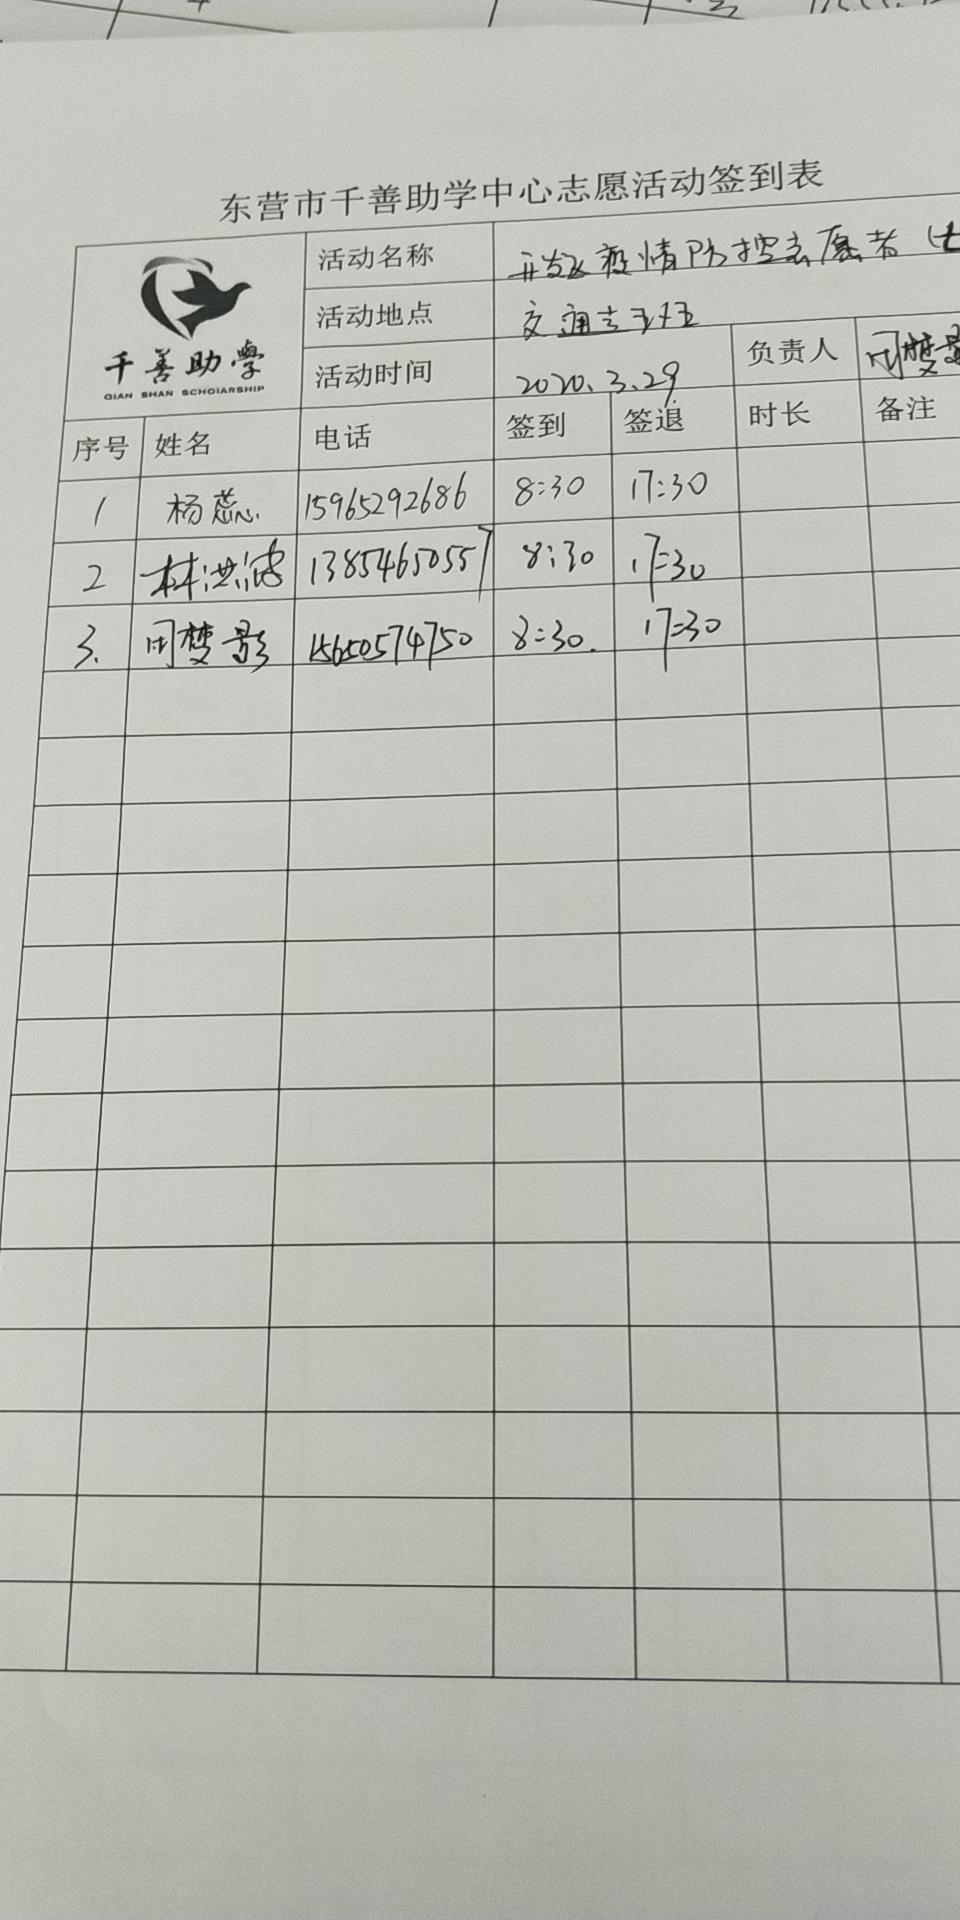 东营市千善助学中心志愿活动签到表
千善助學
QIAN SHAN SCHOIARSHIP
活动名称 开发区疫情防控志愿者(七
活动地点 交通
活动时间 2020.3.29 负责人 闭梦影
序号 姓名 电话 签到 签退 时长 备注
1 杨蕊 15965292686 8:30 17:30
2 林洪波 13854650557 8:30 17:30
3. 闭梦影 15650574750 8:30. 17:30